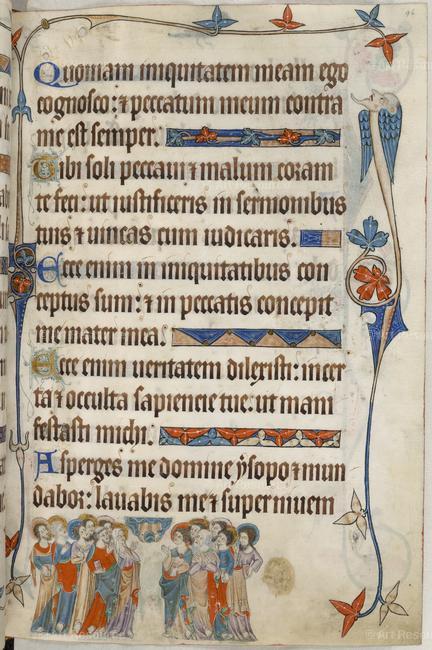 Quoniam iniquitatem meam ego
cognosco: ⁊ peccatum meum contra
me est semper.
Tibi soli peccaui ⁊ malum coram
te feci: ut iustificeris in sermonibus
tuis ⁊ uincas cum iudicaris.
Ecce enim in iniquitatibus con
ceptus sum: ⁊ in peccatis concepit
me mater mea.
Ecce enim ueritatem dilexisti: incer
ta ⁊ occulta sapiencie tue: ut mani
festasti michi.
Asperges me domine ysopo ⁊ mun
dabor: lauabis me ⁊ super niuem